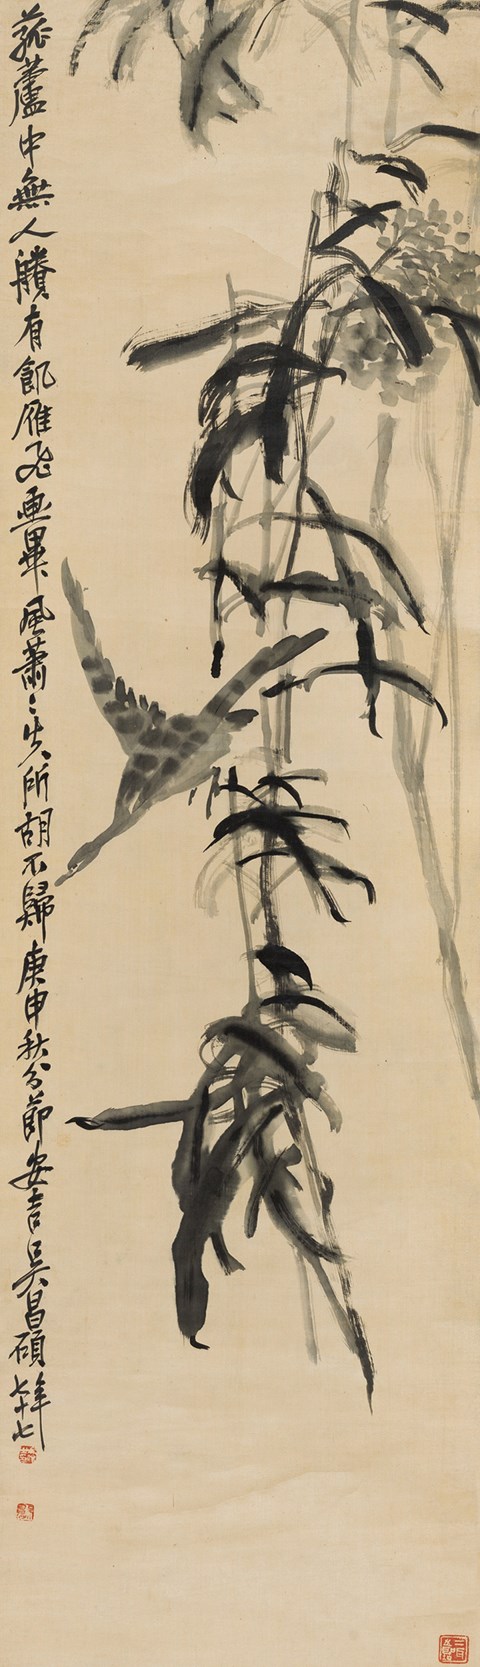 菰蘆中無人賸有飢雁飛畫畢風蕭〻失所胡不歸庚申秋分節安吉吳昌碩年七十七